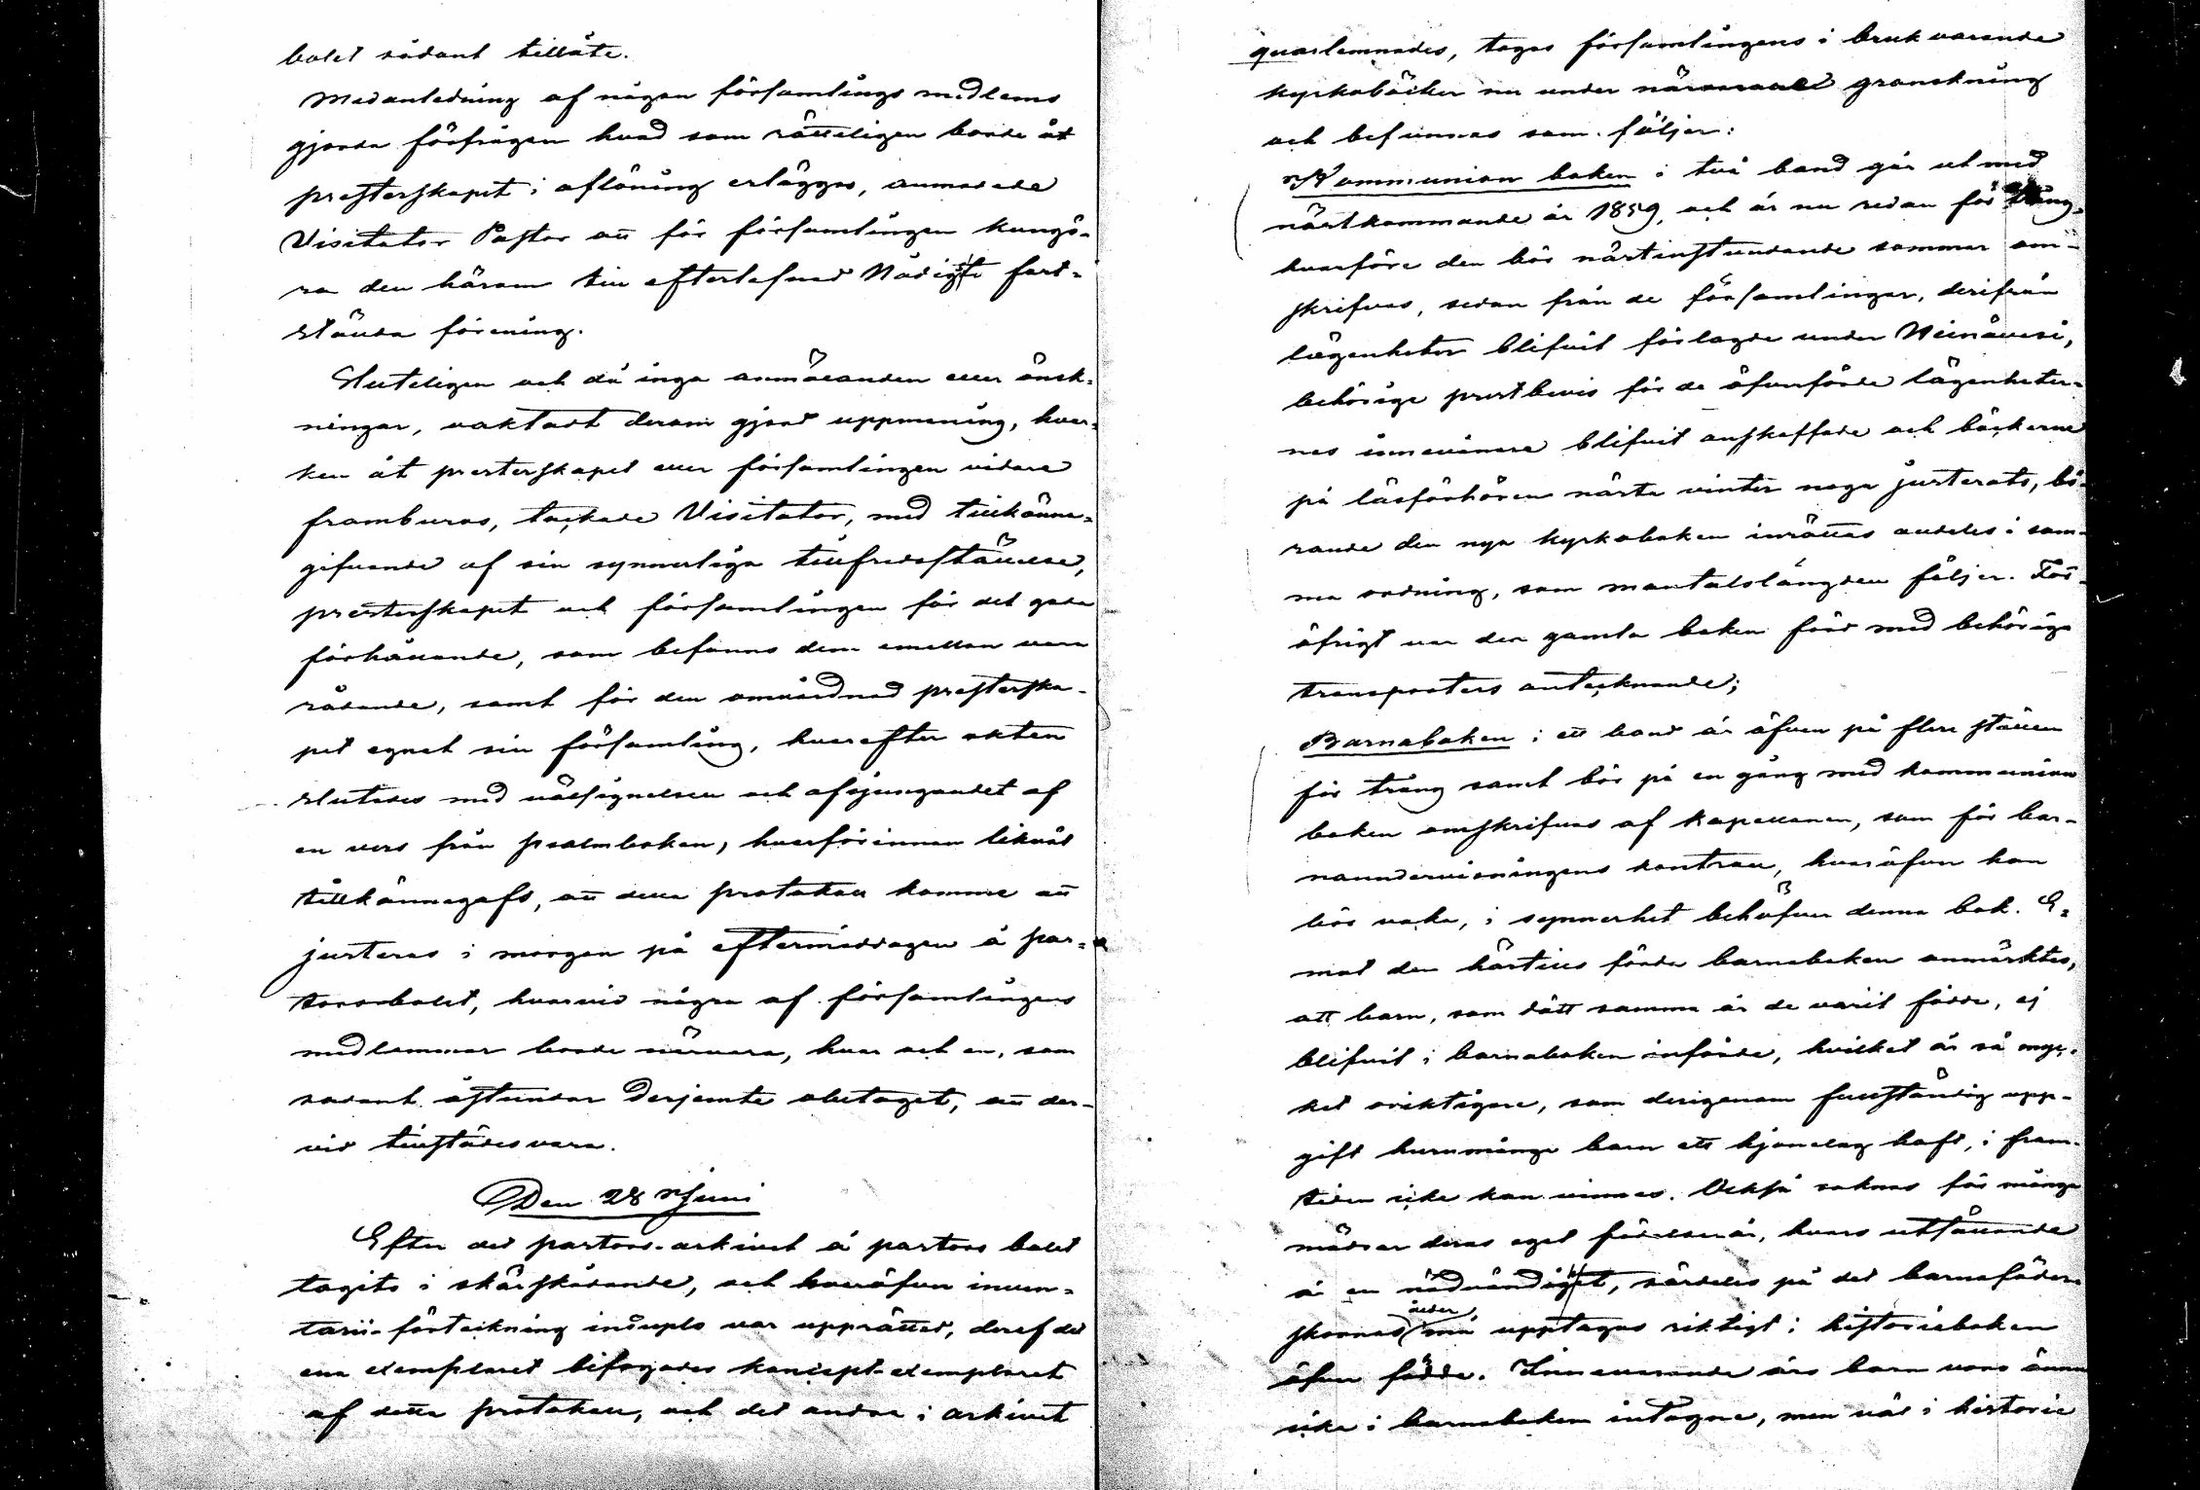 bolet sådant tilläte.
Medanledning af någon församlings medlems
gjorda förfrågan hvad som rätteligen borde åt
presterskapet i aflöning erläggas, anmodade
Visitator Pastor att för församlingen kungö-
ra den härom till efterlefnad Nådigst fast-
stälda förening.
Sluteligen och då inga anmälanden eller önsk-
ningar, oaktadt derom gjord uppmaning, hvar-
ken åt presterskapet eller församlingen vidare
framburos, tackade Visitator, med tillkänna-
gifvande af sin synnerliga tillfredsställelse,
presterskapet och församlingen för det goda
förhållande, som befanns dem emellan vara
rådande, samt för den omvårdnad prestersка-
pet egnat sin församling, hvarefter akten
slutades med välsignelsen och afsjungandet af
en vers från psalmboken, hvarförinnan likväl
tillkännagafs, att detta protokoll komme att
justeras i morgon på eftermiddagen å pas-
torsbolet, hvarvid några af församlingens
medlemmar borde närvara, hvar och en, som
sådant åstundar derjemte obetaget, att der-
vid tillstädesvara.
Den 28 Juni
Efter det pastors-arkivet å pastors bolet
tagits i skärskådande, och haröfver inven-
tarii-förteckning in duplo var upprättad, deraf det
ena exemplaret bifogades koncept-exemplaret
af detta protokoll, och det andra i arkivet
quarlemnades, togos församlingens i bruk varande
kyrkoböcker nu under närmare granskning
och befunnos som följer:
Kommunion boken i två band går ut med
nästkommande år 1859, och är nu redan för trång,
hvarföre den bör nästinstundande sommar om-
skrifvas, sedan från de församlingar, derifrån
lägenheter blifvit förlagde under Heinävesi,
behörige prestbevis för de öfverförde lägenheter-
nas innevånare blifvit anskaffade och böckerne
på läsförhören nästa vinter noga justerats, bö-
rande den nya kyrkoboken inrättas alldeles i sam-
ma ordning, som mantalslängden följer. För
öfrigt var den gamla boken förd med behöriga
transporters antecknande;
Barnaboken i ett band är äfven på flere ställen
för trång samt bör på en gång med kommunion
boken omskrifvas af kapellanen, som för bar-
naundervisningens kontroll, hvaröfver han
bör vaka, i synnerhet behöfver denna bok. E-
mot den härtills förda barnaboken anmärktes,
att barn, som dött samma år de varit födde, ej
blifvit i barnaboken införde, hvilket är så myc-
ket oriktigare, som derigenom fullständig upp-
gift huru många barn ett hjonelag haft, i fram-
tiden icke kan vinnas. Också saknas för många
mödrar deras eget födelseår, hvars utsättande
är en nödvändighet, särdeles på det barnaföder-
skornas ålder må upptagas riktigt i historieboken
öfver födde. Innevarande års barn voro ännu
icke i barnaboken intagne, men väl i historie